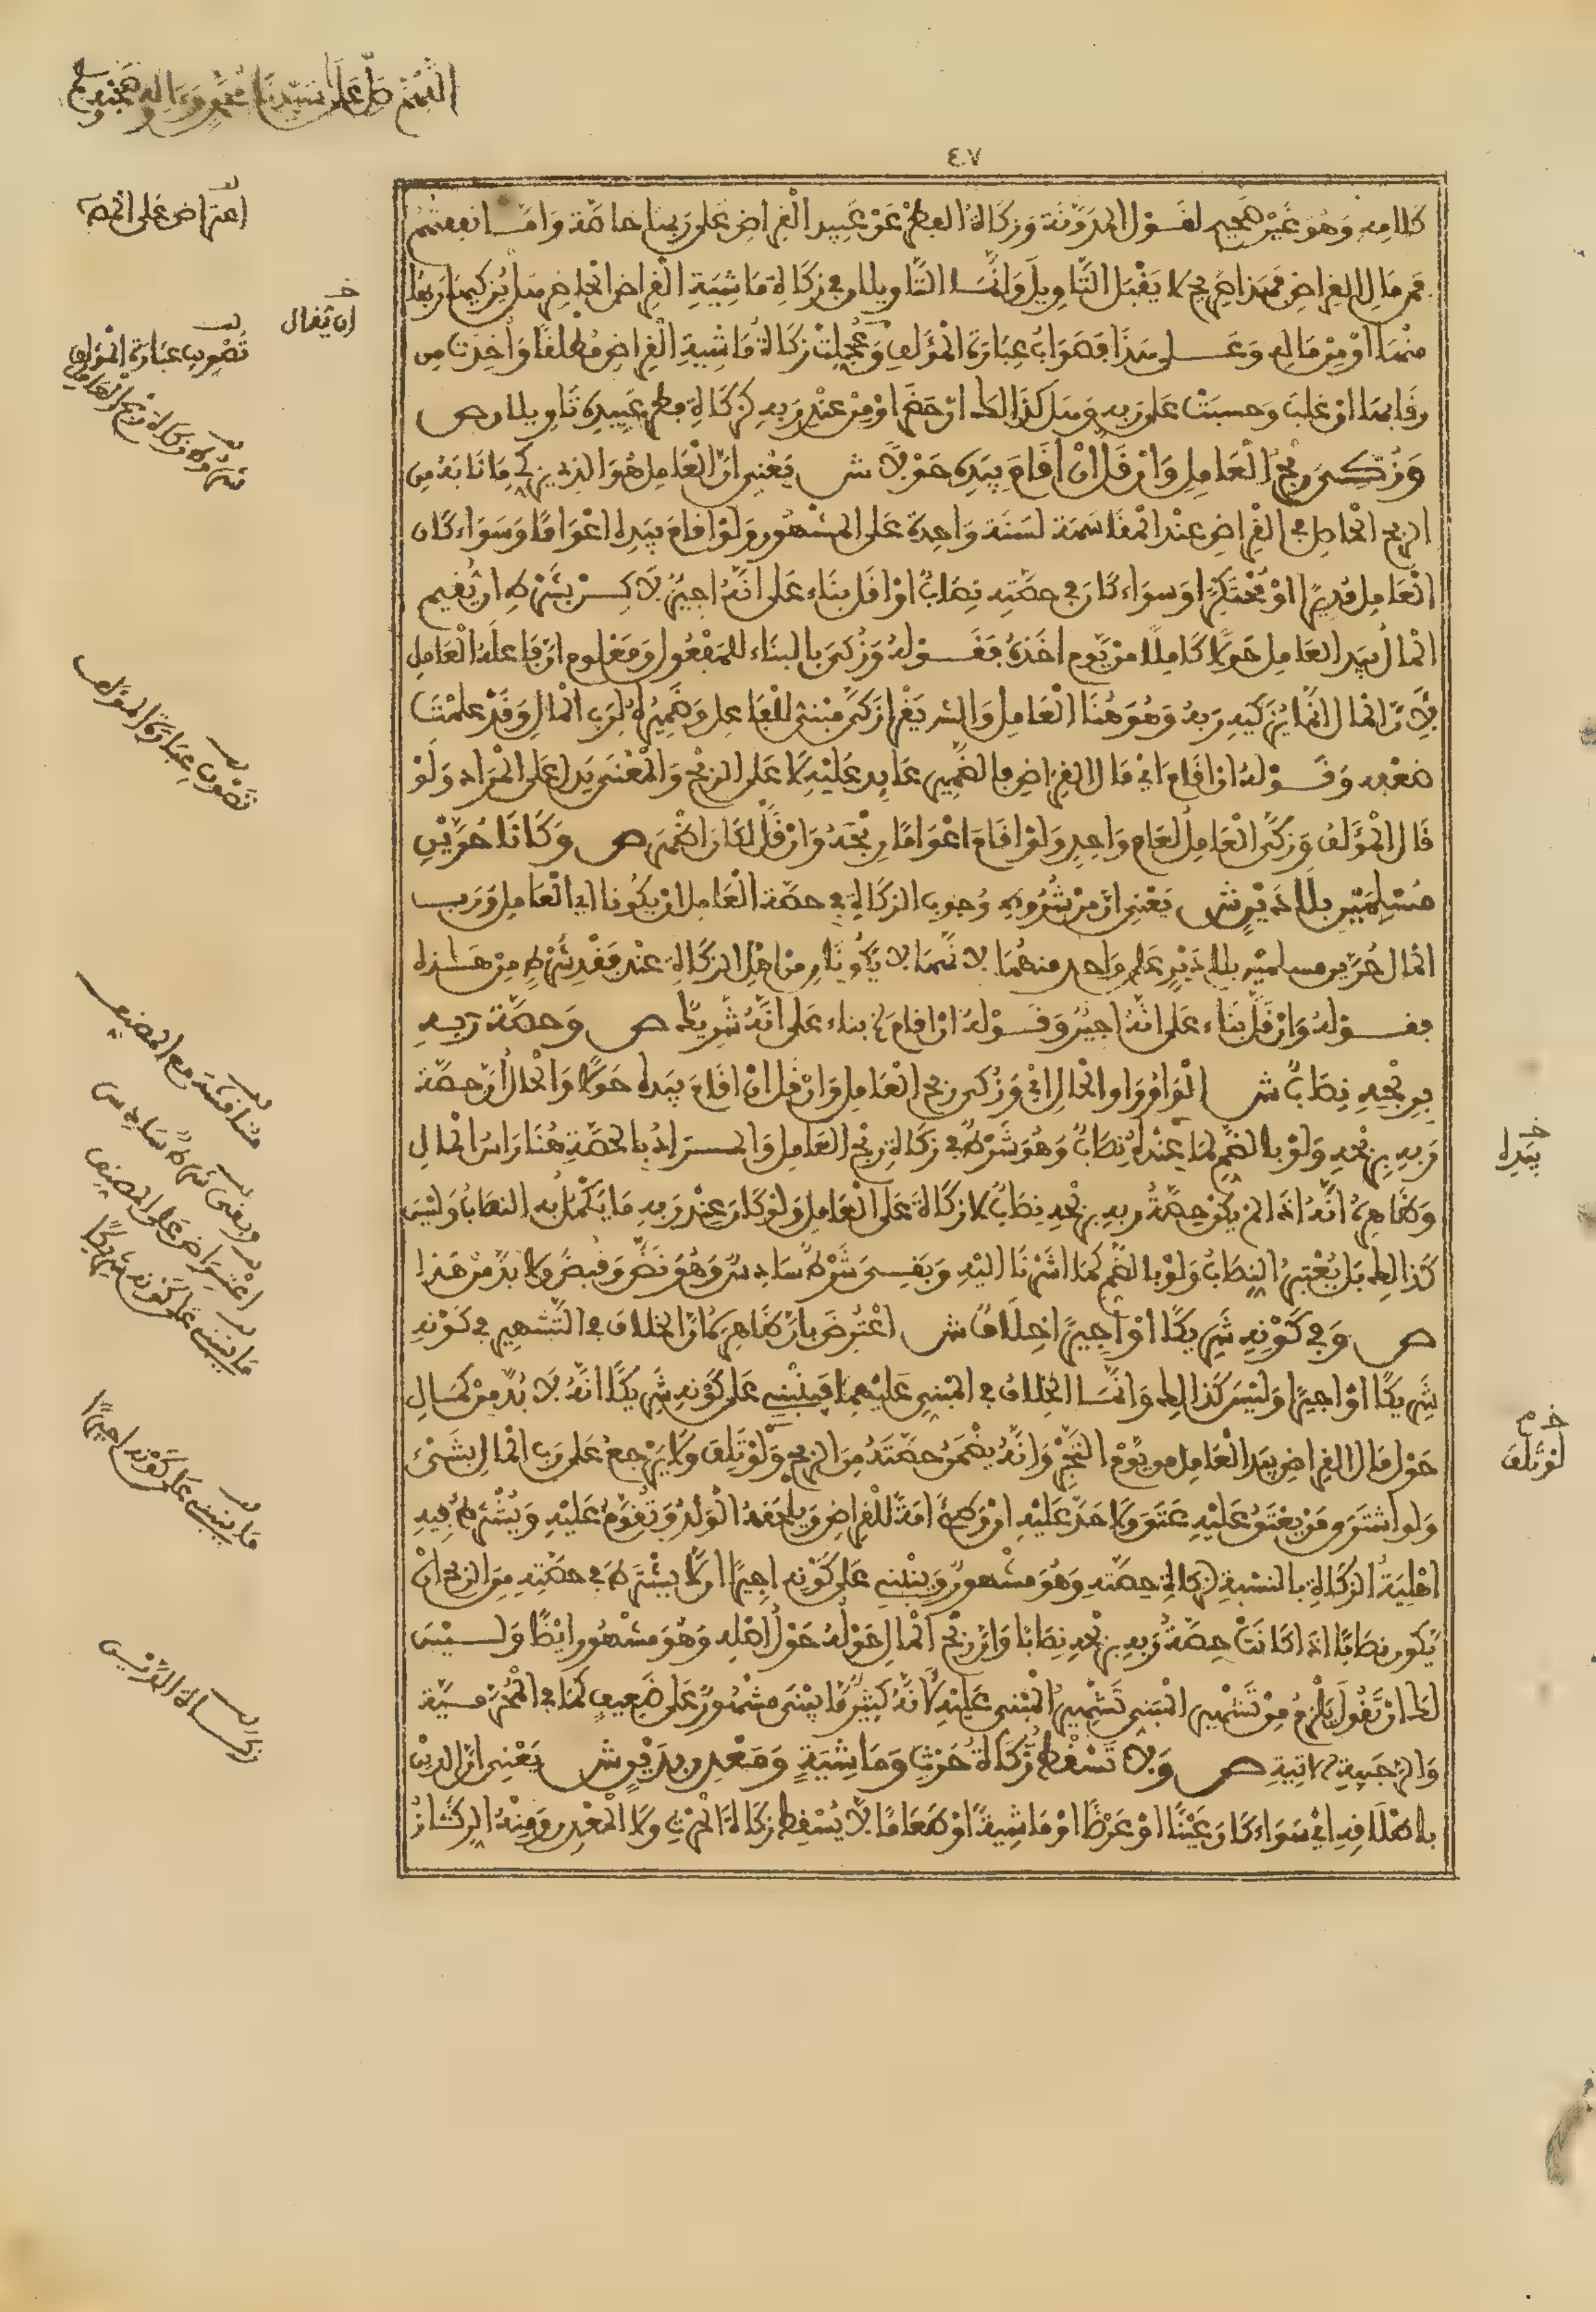 اللهم صل على سيدنا محمد وءاله وصحبه وسلم
٤٧
كلامه وهو غير صحيح لقول المدونة وزكاة الفطر عن عبيد القراض على ربها خاصة واما نفقتهم
فمن مال القراض فهذا صريح لا يقبل التاويل وانما التاويلان في زكاة ماشية القراض الحاضر هل يزكيها ربها
منها او من ماله وعلى هذا فصواب عبارة المؤلف وعجلت زكاة ماشية القراض مطلقا واخذت من
رقابها ان غاب وحسبت على ربه وهل كذالك ان حضر او من عند ربه كزكاة فطر عبيده تاويلان ص
وزكي ربح العامل وان قل ان اقام بيده حولا ش يعني ان العامل هو الذي يزكي ما نابه من
الربح الحاصل في القراض عند المقاسمة لسنة واحدة على المشهور ولو اقام بيده اعواما وسواء كان
العامل مديرا او محتكرا وسواء كان في حصته نصاب او اقل بناء على انه اجير لاكن بشرط ان يقيم
المال بيد العامل حولا كاملا من يوم اخذه فقوله وزكي بالبناء للمفعول ومعلوم ان فاعله العامل
لان المال انما يزكيه ربه وهو هنا العامل والشر يقرا زكى مبني للفاعل وضميره لرب المال وقد علمت
ضعفه وقوله ان اقام اي مال القراض فالضمير عايد عليه لا على الربح والمعنى يدل على المراد ولو
قال المؤلف وزكى العامل لعام واحد ولو اقام اعواما ربحه وان قل لكان اخصر ص وكانا حرين
مسلمين بلا دين ش يعني ان من شروط وجوب الزكاة في حصة العامل ان يكونا اي العامل ورب
المال حرين مسلمين بلا دين على واحد منهما لانهما لا يكونان من اهل الزكاة عند فقد شرط من هذه
فقوله وان قل بناء على انه اجير وقوله ان اقام بناء على انه شريك ص وحصة ربه
بربحه نصاب ش الواو واو الحال اي وزكي ربح العامل وان قل ان اقام بيده حولا والحال ان حصة
ربه بربحه ولو بالضم لما عنده نصاب وهو شرط في زكاة ربح العامل والمراد بالحصة هنا راس المال
وظاهره انه اذا لم يكن حصة ربه بربحه نصاب لا زكاة على العامل ولو كان عند ربه ما يكمل به النصاب وليس
كذالك بل يعتبر النصاب ولو بالضم كما اشرنا اليه وبقي شرط سادس وهو نض وقبض ولا بد من هذا
ص وفي كونه شريكا او اجيرا خلاف ش اعترض بان ظاهره ان الخلاف في التشهير في كونه
شريكا او اجيرا وليس كذالك وانما الخلاف في المبني عليهما فينبني على كونه شريكا انه لا بد من كمال
حول مال القراض بيد العامل من يوم التجر وانه يضمن حصته من الربح ولو تلف ولا يرجع على رب المال بشيء
ولو اشترى من يعتق عليه عتق ولا حد عليه ان وطئ امة للقراض ويلحقه الولد وتقوم عليه ويشترط فيه
اهلية الزكاة بالنسبة لزكاة حصته وهو مشهور وينبني على كونه اجيرا ان لا يشترط في حصته من الربح ان
يكون نصابا اذا كانت حصة ربه بربحه نصابا وان ربح المال حوله حول اصله وهو مشهور ايضا وليس
لك ان تقول يلزم من تشهير المبني تشهير المبني عليه لانه كثيرا ما يبنى مشهور على ضعيف كما في
ص ولا تسقط زكاة حرث وماشية ومعدن بدين ش يعني ان الدين
باطلاقه اي سواء كان عينا او عرضا او ماشية او طعاما لا يسقط زكاة الحرث ولا المعدن ومنه الركاز
اعتراض على المص
ان يقال
تصويب عبارة المؤلف
شروط زكاة ربح العامل
تصويب عبارة المؤلف
مناقشة مع المصنف
وبقي شرط سادس
اعتراض على المصنف
ما ينبني على كونه شريكا
ما ينبني على كونه اجيرا
بيده
لو تلف